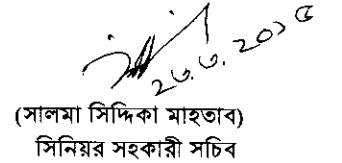 ২৬.৩.২০১৫
(সালমা সিদ্দিকা মাহতাব)
সিনিয়র সহকারী সচিব